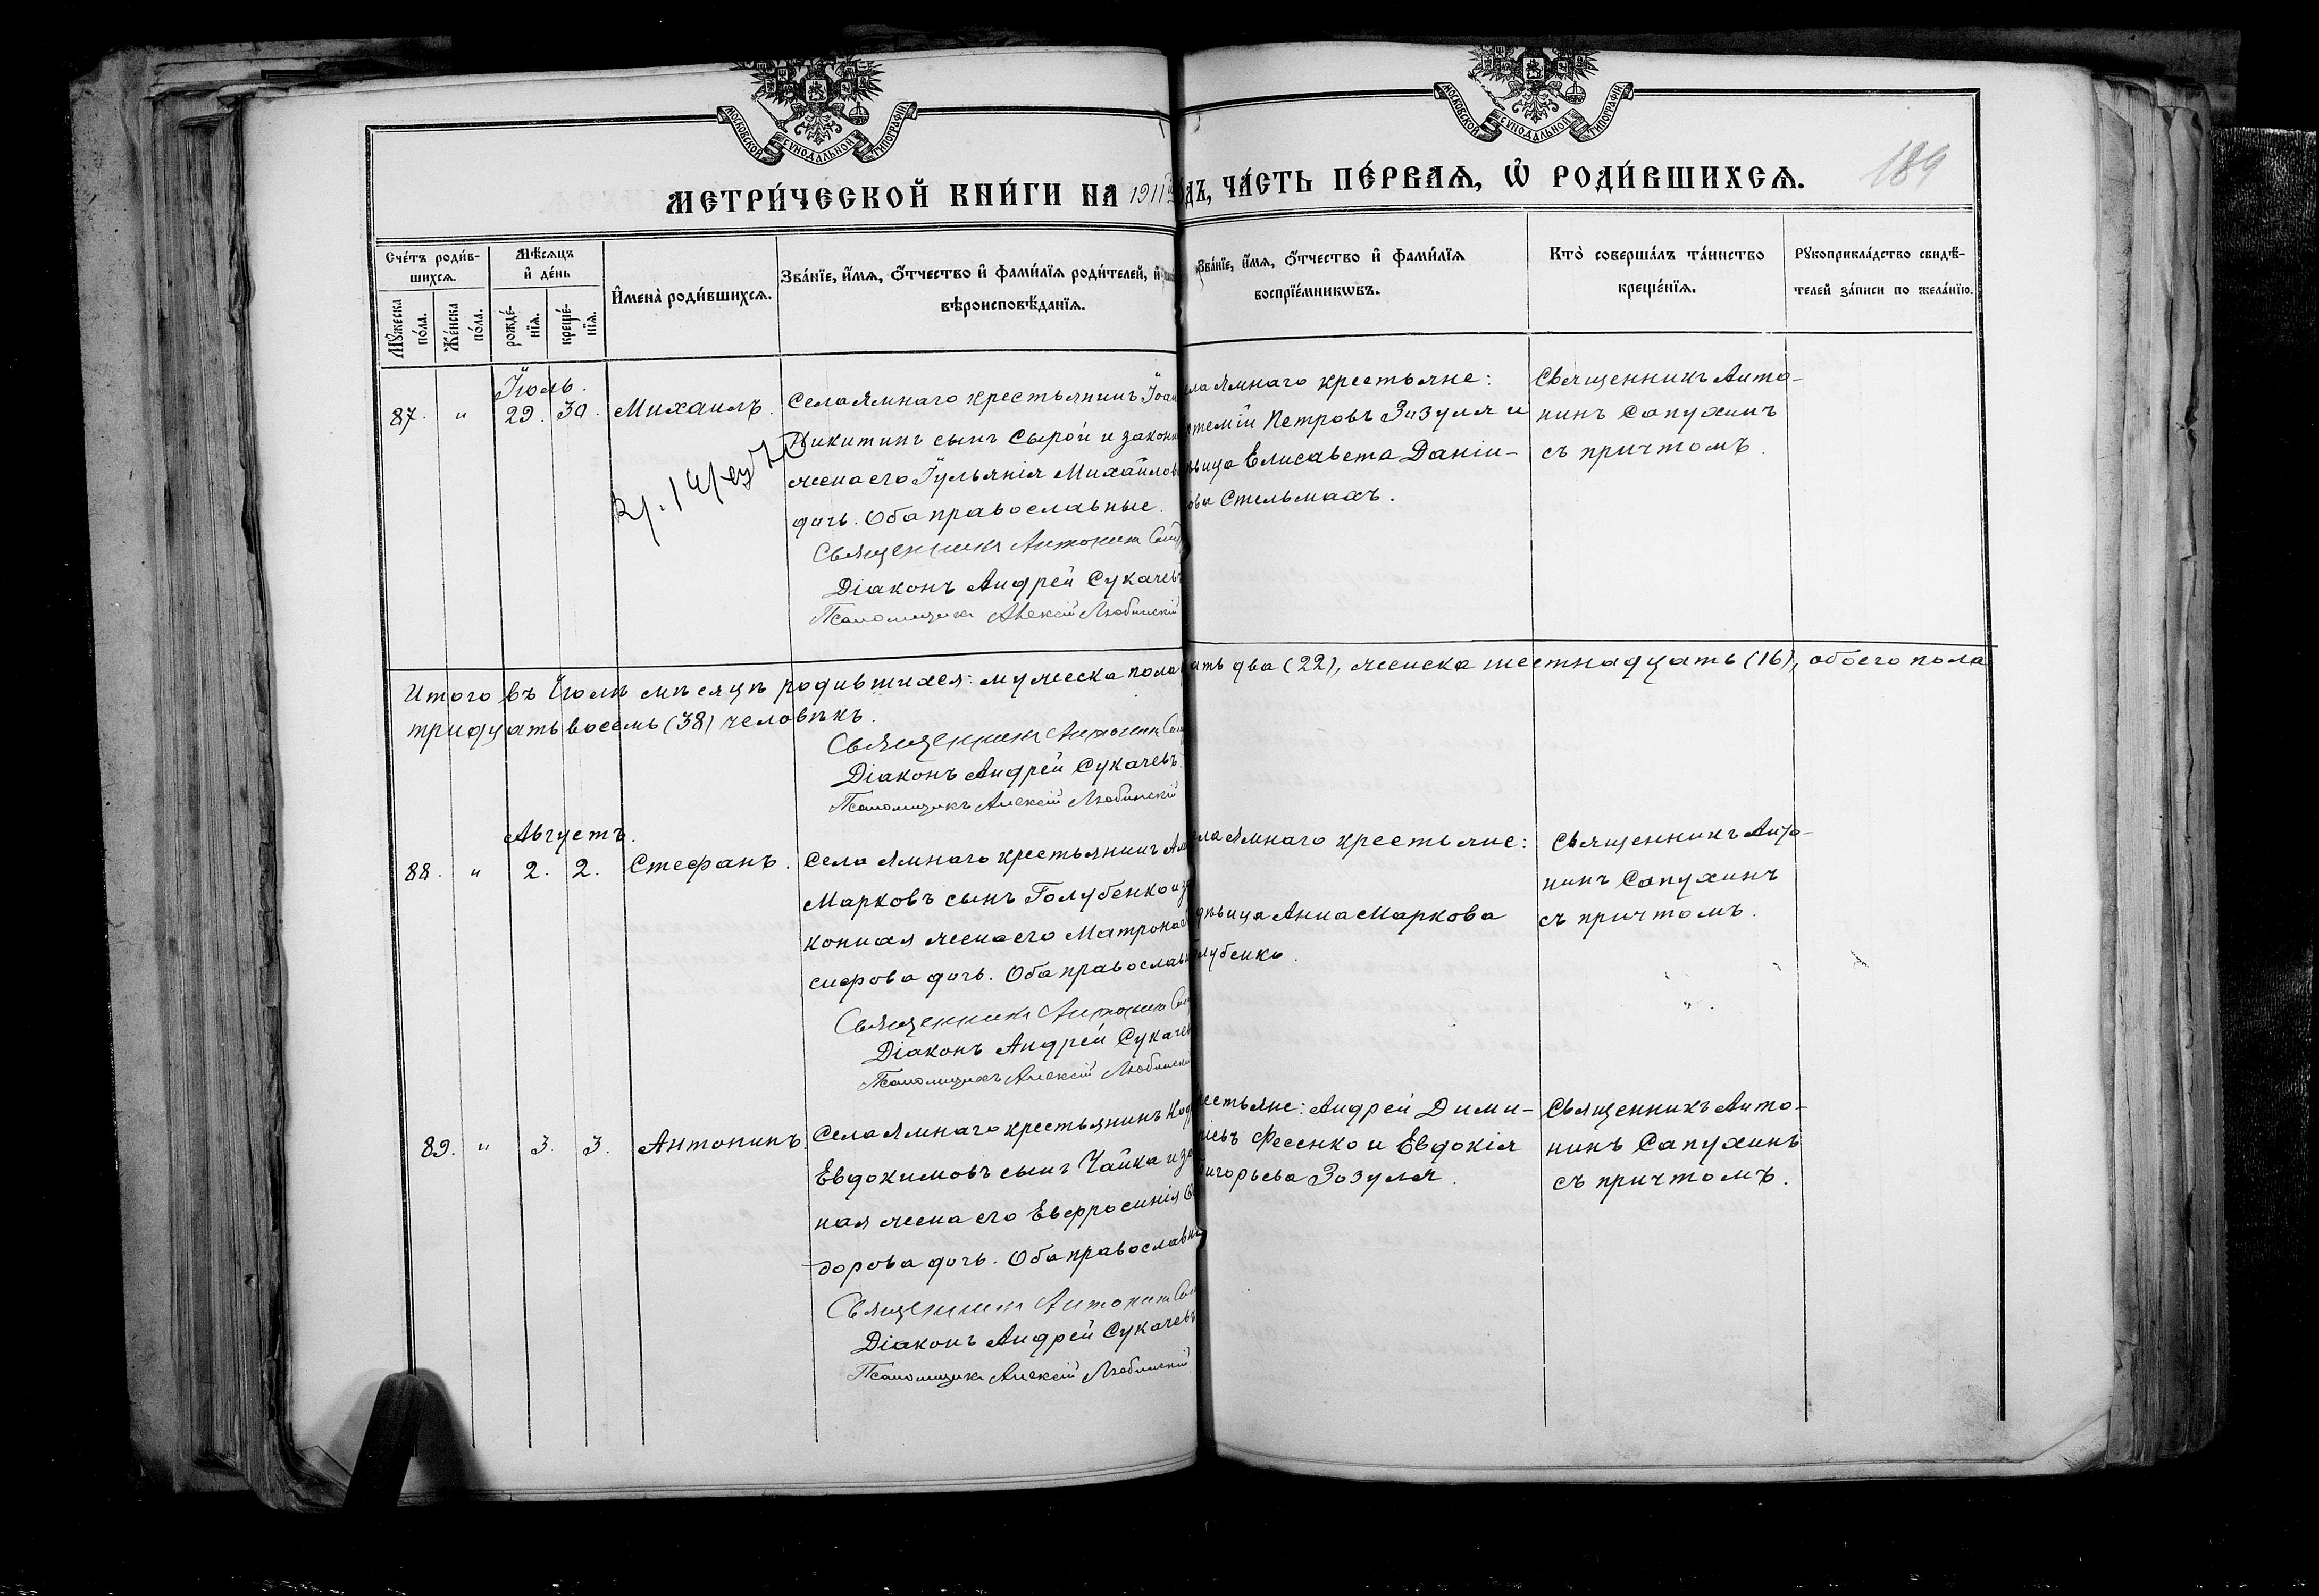 МОСКОВСКОЙ СѴНОДАЛЬНОЙ ТИПОГРАФІИ
МОСКОВСКОЙ СѴНОДАЛЬНОЙ ТИПОГРАФІИ
189
МЕТРИ́ЧЕСКОЙ КНИ́ГИ НА 1911 ДЪ, ЧА́СТЬ ПЕ́РВАѦ, Ѡ҆ РОДИ́ВШИХСѦ.
Сче́тъ роди́в-
шихсѧ.
Мꙋ́жеска по́ла.
Же́нска по́ла.
Мѣ́сѧцъ и҆ де́нь
рожде́-нїѧ.
креще́-нїѧ.
И҆мена̀ роди́вшихсѧ.
Зва́нїе, и҆́мѧ, ѻ҆́тчество и҆ фами́лїѧ роди́телей, и҆
вѣроисповѣ́данїѧ.
Зва́нїе, и҆́мѧ, ѻ҆́тчество и҆ фами́лїѧ
воспрїе́мникѡвъ.
Кто̀ соверша́лъ та́инство
креще́нїѧ.
Рꙋкоприкла́дство свидѣ́-
телей за́писи по жела́нїю.
Іюль.
87. " 29. 30. Михаилъ.
Села Ямнаго крестьянинъ Іоан
Никитинъ сынъ Сырой и законн
жена его Іульянія Михайлов
дочь. Оба православные.
Священникъ Антонин Сапу
Діаконъ Андрей Сукачевъ
Псаломщикъ Алексій Любинскій
ела Ямнаго крестьяне:
ртемій Петровъ Зозуля и
вица Елисавета Даніи-
ова Стельмахъ.
Священникъ Анто-
нинъ Сапухинъ
съ причтомъ.
Итого въ Іюлѣ мѣсяцѣ родившихся: мужеска пола ать два (22), женска шестнадцать (16), обоего пола
тридцать восемь (38) человѣкъ.
Священникъ Антонин Сапу
Діаконъ Андрей Сукачевъ.
Псаломщикъ Алексій Любинскій
Августъ.
88. " 2. 2. Стефанъ.
Села Ямнаго крестьянинъ
Марковъ сынъ Голубенко и за
конная жена его Матрона
сифова дочь. Оба православн
Священникъ Антонин Сап
Діаконъ Андрей Сукачев
Псаломщикъ Алексій Любински
ела Ямнаго крестьяне:
дѣвица Анна Маркова
лубенко.
Священникъ Анто-
нинъ Сапухинъ
съ причтомъ.
89. " 3. 3. Антонинъ.
Села Ямнаго крестьянинъ
Евдокимовъ сынъ Чайка и зак
ная жена его Евфросинія
дорова дочь. Оба православн
Священникъ Антонин Сап
Діаконъ Андрей Сукачевъ
Псаломщикъ Алексій Любинскій
рестьяне: Андрей Дими-
ріевъ Фесенко и Евдокія
ригорьева Зозуля.
Священникъ Анто-
нинъ Сапухинъ
съ причтомъ.